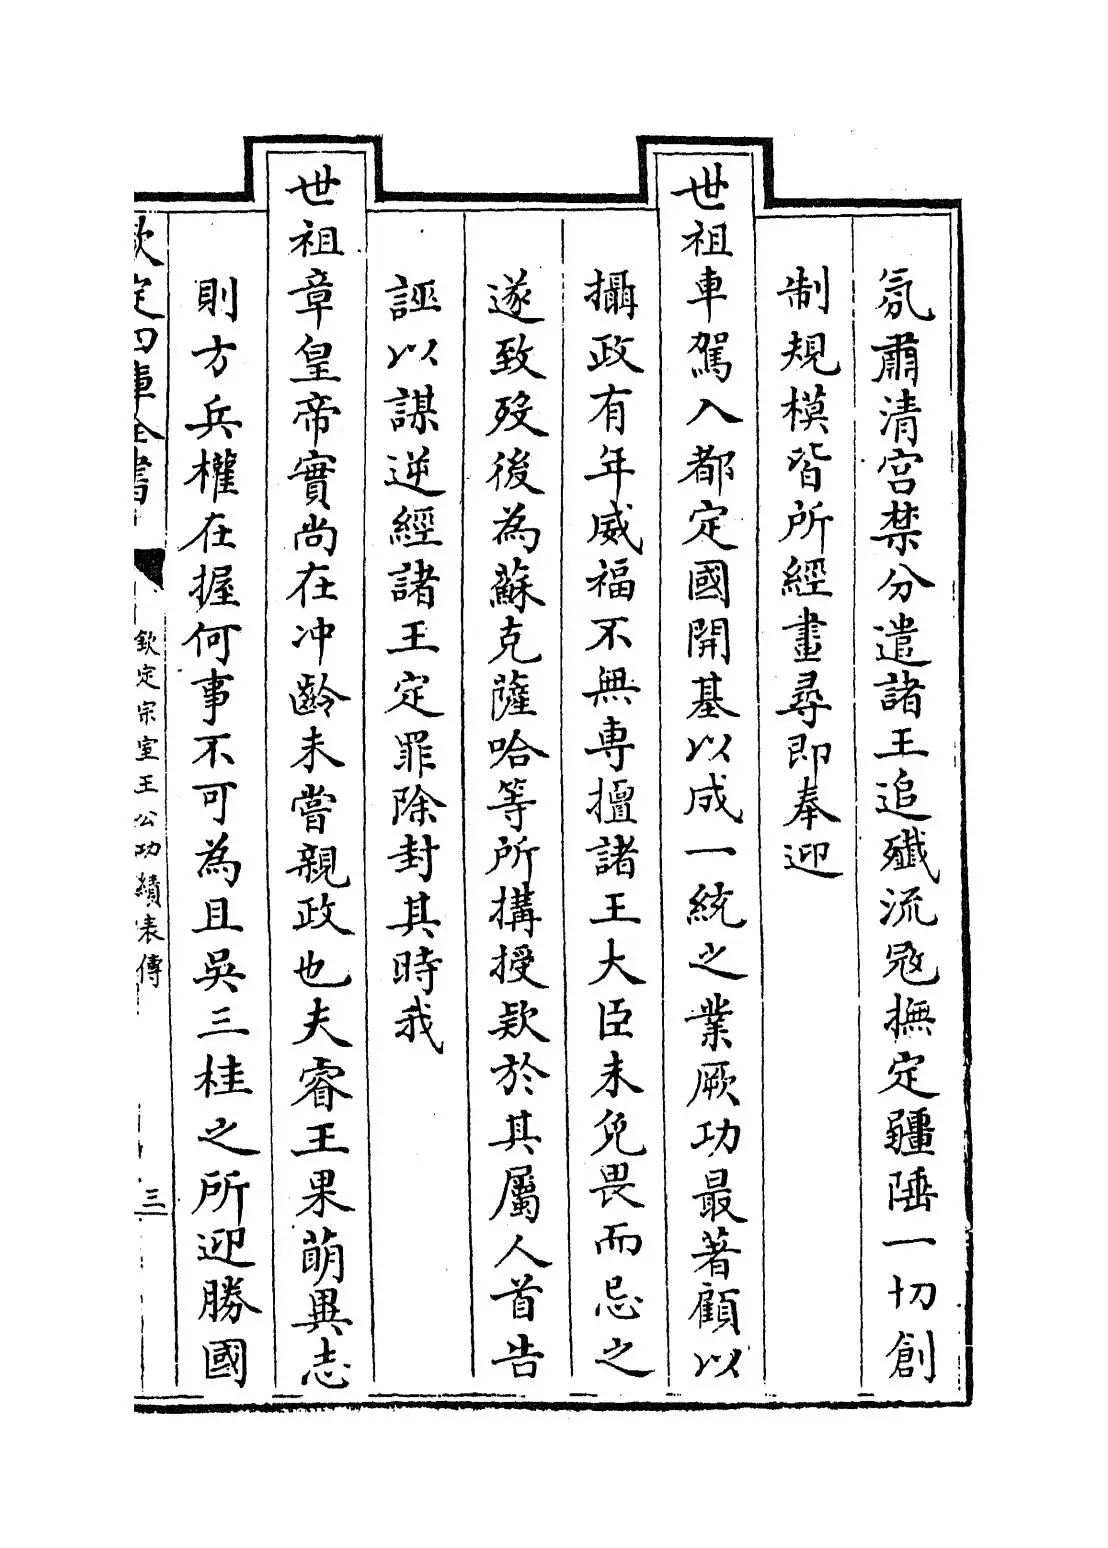 氛肅清宫禁分遣諸王追殲流冦撫定疆陲一切創
制規模皆所經畫尋即奉迎
世祖車駕入都定國開基以成一統之業厥功最著顧以
攝政有年威福不無専擅諸王大臣未免畏而忌之
遂致殁後為蘇克薩哈等所搆授欵於其屬人首告
誣以謀逆經諸王定罪除封其時我
世祖章皇帝實尚在冲齡未嘗親政也夫睿王果萌異志
則方兵權在握何事不可為且吳三桂之所迎勝國
欽定四庫全書
欽定宗室王公功績表傳
三